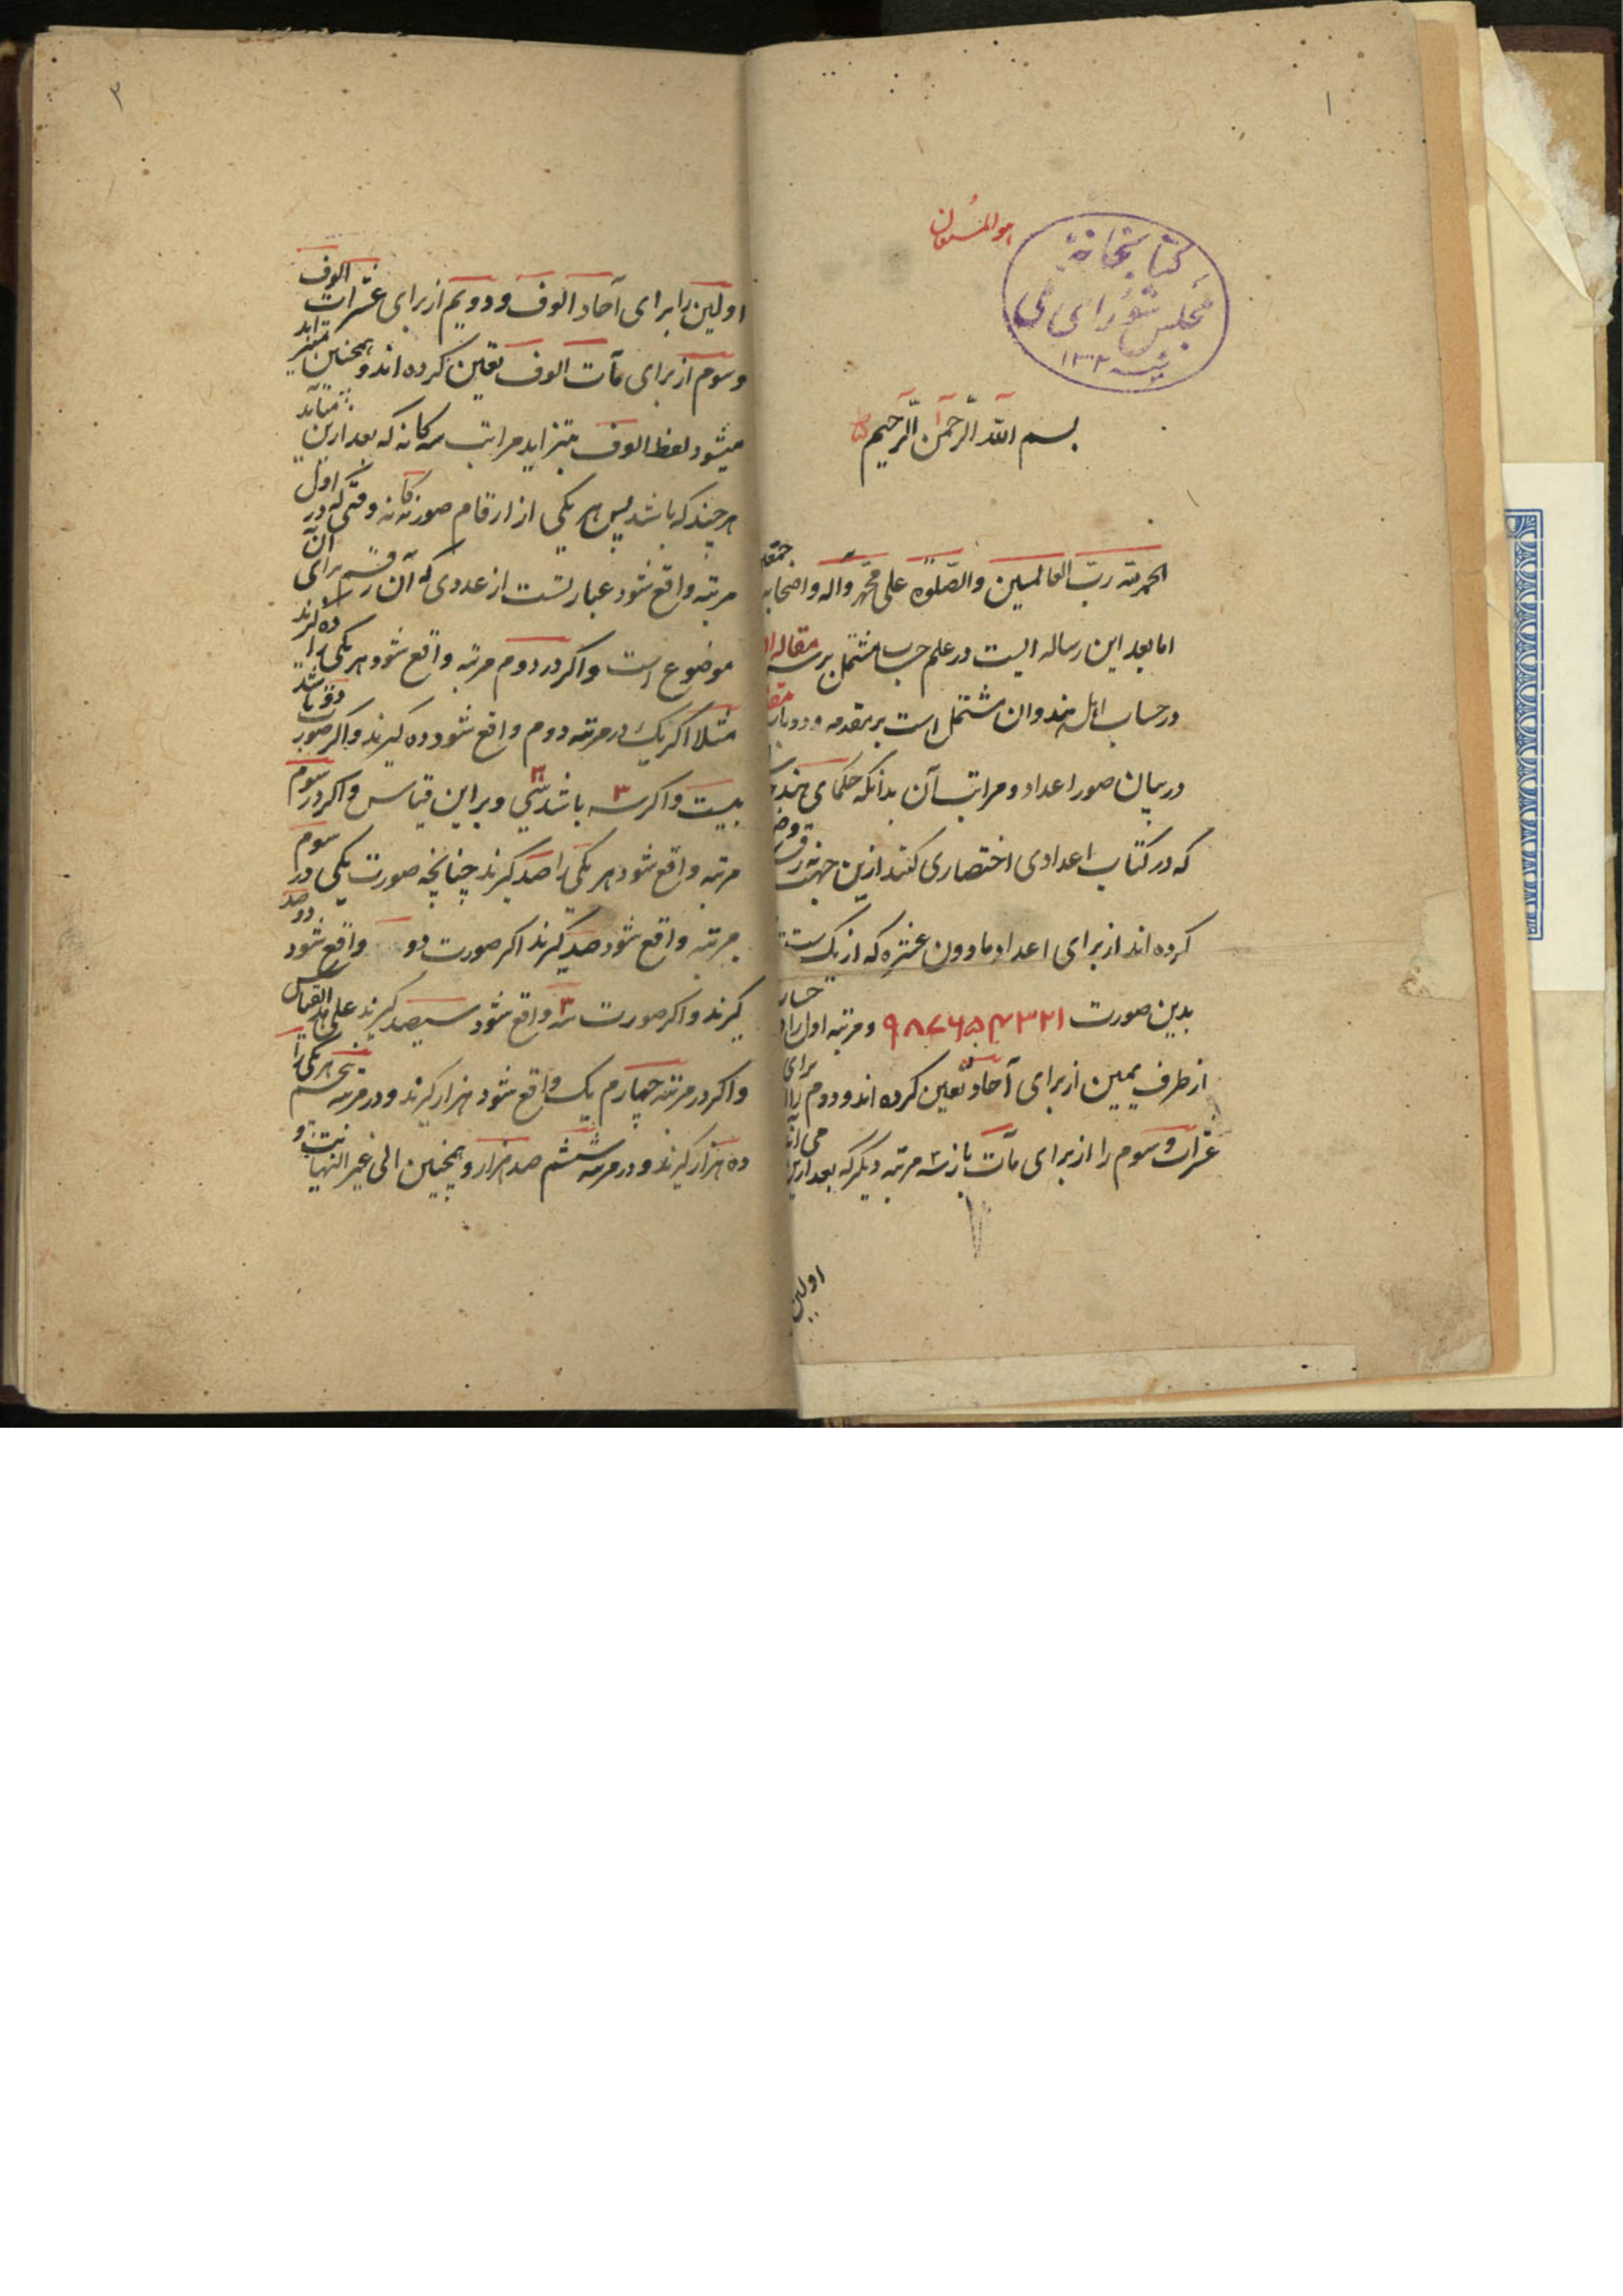 ۱
هو المستعان
کتابخانهٔ
مجلس شورای ملی
۱۳۰۲
بسم الله الرحمن الرحیم
الحمد لله رب العالمین والصلوة علی محمد وآله واصحابه
اما بعد این رساله ایست در علم حساب مشتمل بر سه مقاله
در حساب اهل هند و ان مشتمل است بر مقدمه و دو باب
در بیان صور اعداد و مراتب آن بدانکه حکمای هند
که در کتاب اعدادی اختصاری کنند ازین جهت
کرده اند از برای اعداد مادون عشره که از یک
بدین صورت ۱ ۲ ۳ ۴ ۵ ۶ ۷ ۸ ۹ و مرتبه اول را
از طرف یمین از برای آحاد تعین کرده اند و دوم را برای
عشرات و سوم را از برای مآت باز سه مرتبه دیگر که بعد ازین می آید
اولین
۳
اولین را برای آحاد الوف و دویم از برای عشرات الوف
و سوم از برای مآت الوف تعین کرده اند و همچنین متزاید
میشود لفظ الوف بتزاید مراتب سه کانه که بعد ازین می آید
هر چند که باشد پس هر یکی از ارقام صور نه کانه وقتی که در اول
مرتبه واقع شود عبارتست از عددی که آن رقم برای آن
موضوع است و اکر در دوم مرتبه واقع شود هر یکی را ده کیرند
مثلا اکر یک در مرتبه دوم واقع شود ده کیرند و اکر صورت دو باشد
بیست و اکر سه ۳ باشد سی و بر این قیاس و اکر در سوم
مرتبه واقع شود هر یکی را صد کیرند چنانچه صورت یکی در سوم
مرتبه واقع شود صد کیرند اکر صورت دو واقع شود دو صد
کیرند و اکر صورت سه ۳ واقع شود سیصد کیرند علی هذ القیاس
و اکر در مرتبه چهارم یک واقع شود هزار کیرند و در مرتبه پنجم هر یکی را
ده هزار کیرند و در مرتبه ششم صد هزار و همچنین الی غیر النهایت و